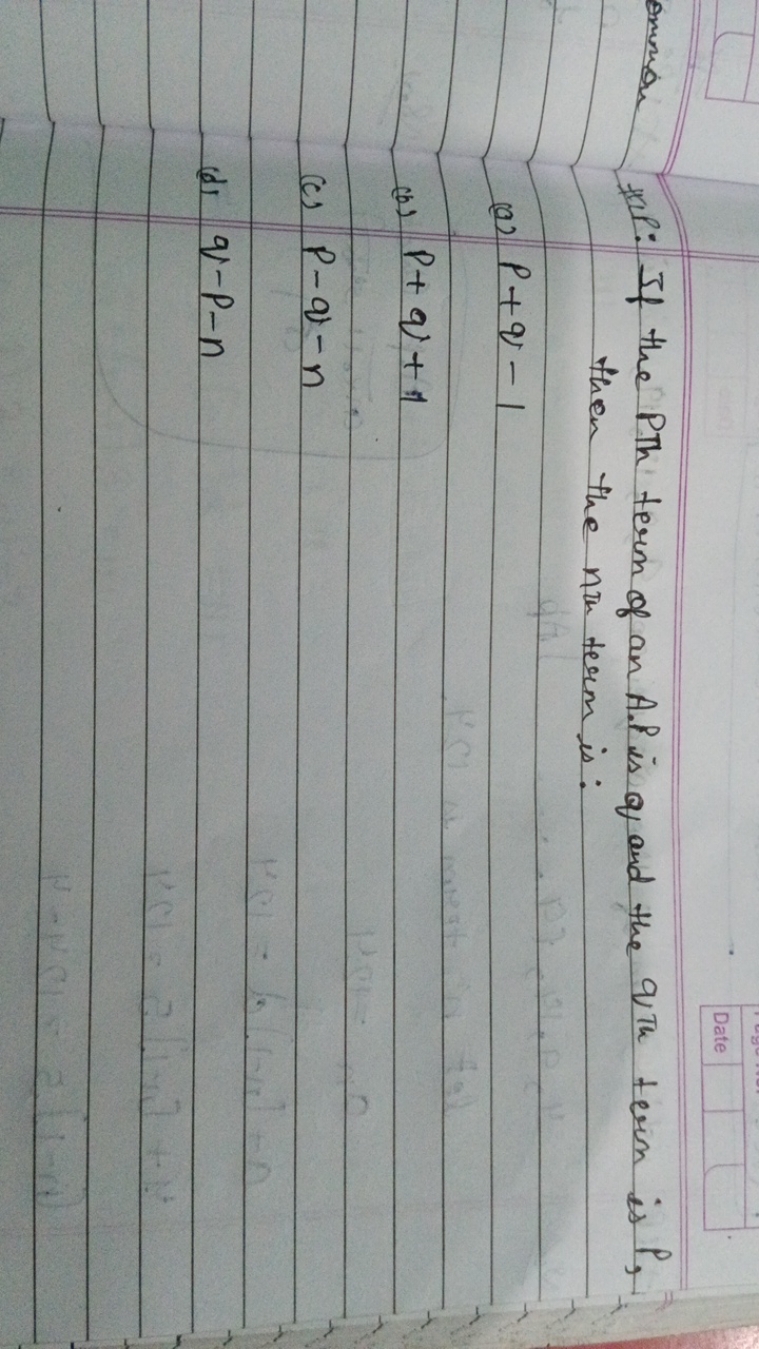 ommon
Date
If the Pth term of an A.P is q and the qth term is P,
then the nth term is:
(a) P+q-1
(b) P+q+1
(c) P-q-n
(d) q-P-n